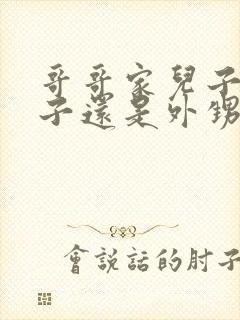 哥哥家兒子
子還是外甥
會説話的肘子